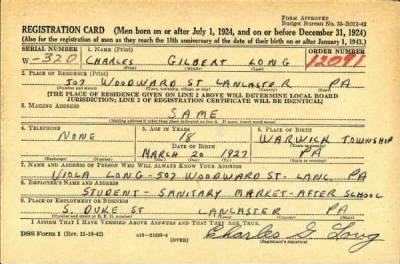 FORM APPROVED
Budget Bureau No. 33-R012-42
REGISTRATION CARD (Men born on or after July 1, 1924, and on or before December 31, 1924)
(Also for the registration of men as they reach the 18th anniversary of the date of their birth on or after January 1, 1943.)
SERIAL NUMBER 1. NAME (Print) ORDER NUMBER
W-320 CHARLES GILBERT LONG 12091
(First) (Middle) (Last)
2. PLACE OF RESIDENCE (Print)
507 WOODWARD ST LANCASTER PA
(Number and street) (Town, township, village, or city) (County) (State)
[THE PLACE OF RESIDENCE GIVEN ON LINE 2 ABOVE WILL DETERMINE LOCAL BOARD
JURISDICTION; LINE 2 OF REGISTRATION CERTIFICATE WILL BE IDENTICAL]
3. MAILING ADDRESS
SAME
[Mailing address if other than place indicated on line 2. If same, insert word same]
4. TELEPHONE 5. AGE IN YEARS 6. PLACE OF BIRTH
NONE 18 WARWICK TOWNSHIP
DATE OF BIRTH
MARCH 20 1927 PA
(Exchange) (Number) (Mo.) (Day) (Yr.) (State or country)
7. NAME AND ADDRESS OF PERSON WHO WILL ALWAYS KNOW YOUR ADDRESS
VIOLA LONG-507 WOODWARD ST-LANC. PA
8. EMPLOYER'S NAME AND ADDRESS
STUDENT-SANITARY MARKET-AFTER SCHOOL
9. PLACE OF EMPLOYMENT OR BUSINESS
S. DUKE ST LANCASTER PA
(Number and street or R. F. D. number) (Town) (County) (State)
I AFFIRM THAT I HAVE VERIFIED ABOVE ANSWERS AND THAT THEY ARE TRUE.
DSS Form 1 (Rev. 11-16-42) (OVER) Charles G Long
(Registrant's signature)